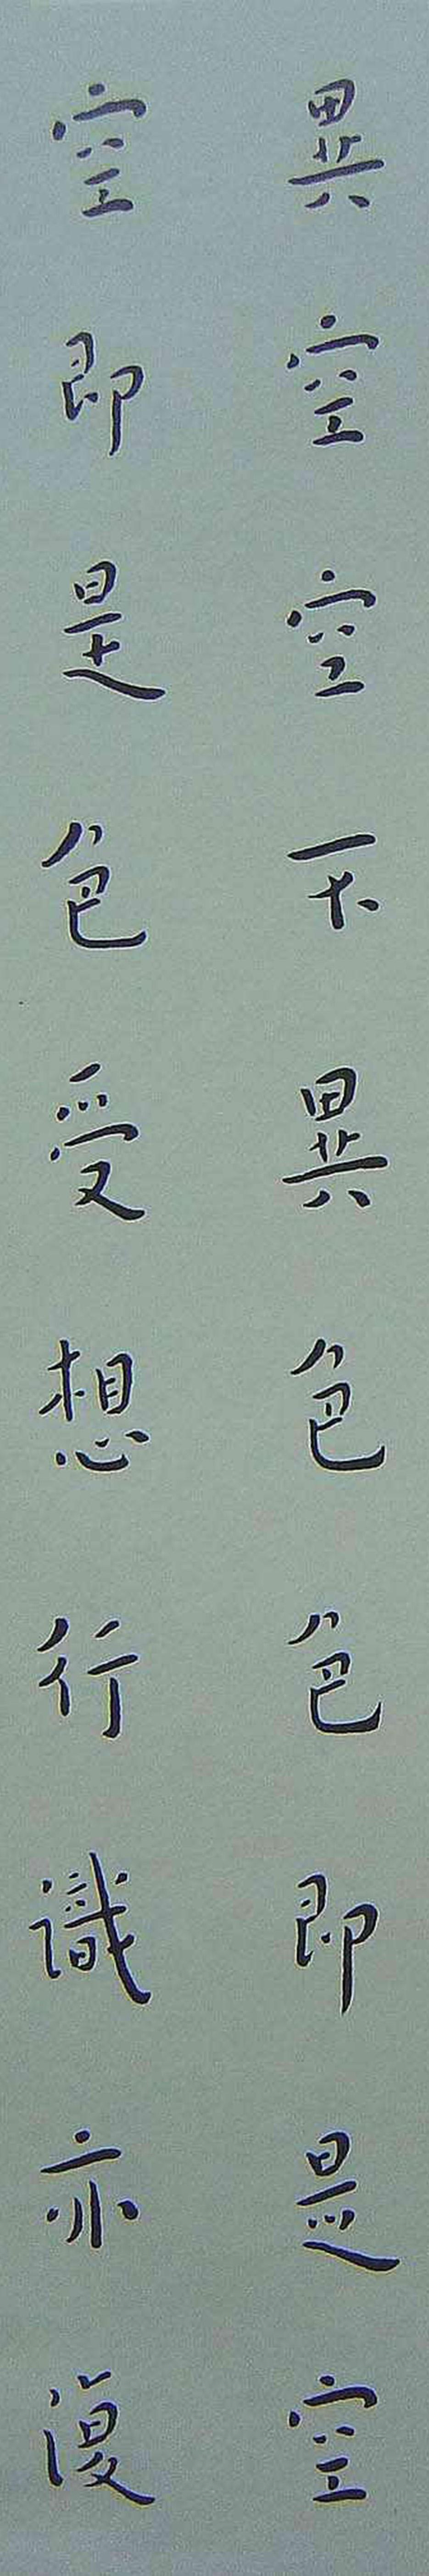 異空空不異色色即是空
空即是色受想行識亦復